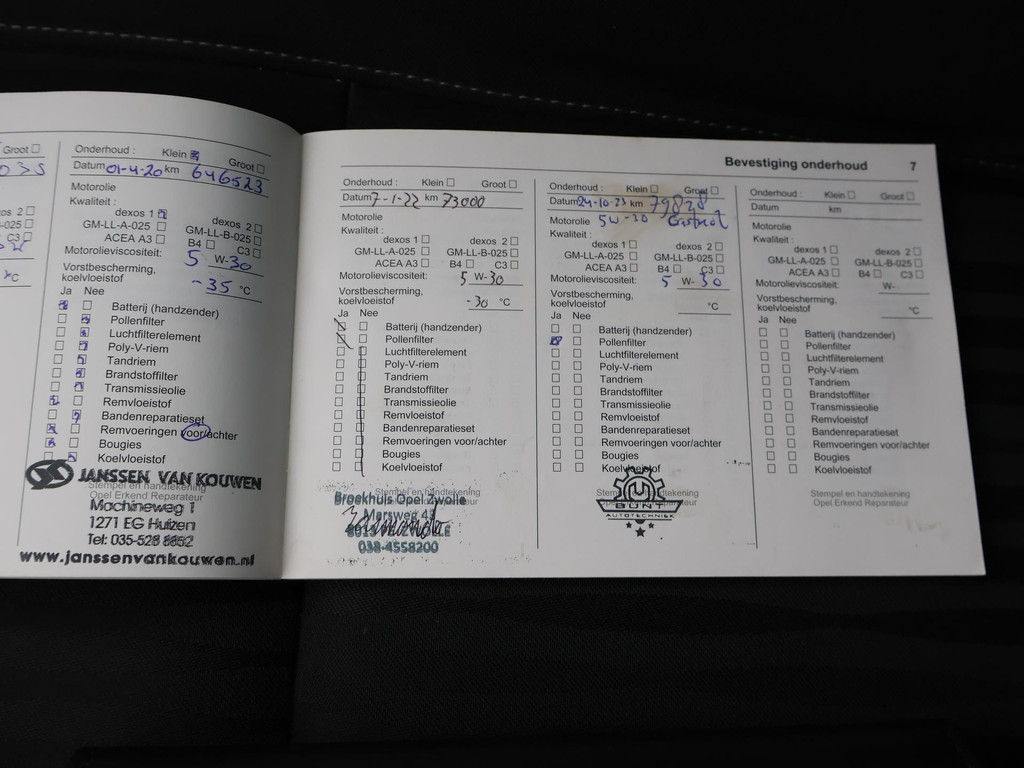 Groot
os 2
-025
C3
°C
Onderhoud : Klein Groot
Datum 01-4-20 km 646523
Motorolie
Kwaliteit :
dexos 1 dexos 2
GM-LL-A-025 GM-LL-B-025
ACEA A3 B4 C3
Motorolieviscositeit: 5 W-30
Vorstbescherming,
koelvloeistof -35 °C
Ja Nee
Batterij (handzender)
Pollenfilter
Luchtfilterelement
Poly-V-riem
Tandriem
Brandstoffilter
Transmissieolie
Remvloeistof
Bandenreparatieset
Remvoeringen voor/achter
Bougies
Koelvloeistof
JANSSEN VAN KOUWEN
Stempel en handtekening
Opel Erkend Reparateur
Machineweg 1
1271 EG Huizen
Tel: 035-528 8852
www.janssenvankouwen.nl
Bevestiging onderhoud 7
Onderhoud : Klein Groot
Datum 7-1-22 km 73000
Motorolie
Kwaliteit :
dexos 1 dexos 2
GM-LL-A-025 GM-LL-B-025
ACEA A3 B4 C3
Motorolieviscositeit: 5 W-30
Vorstbescherming,
koelvloeistof -30 °C
Ja Nee
Batterij (handzender)
Pollenfilter
Luchtfilterelement
Poly-V-riem
Tandriem
Brandstoffilter
Transmissieolie
Remvloeistof
Bandenreparatieset
Remvoeringen voor/achter
Bougies
Koelvloeistof
Stempel en handtekening
Broekhuis Opel Zwolle
Marsweg 43
038-4558200
Onderhoud : Klein Groot
Datum 24-10-23 km 79828
Motorolie 5W-30 Castrol
Kwaliteit :
dexos 1 dexos 2
GM-LL-A-025 GM-LL-B-025
ACEA A3 B4 C3
Motorolieviscositeit: 5 W-30
Vorstbescherming,
koelvloeistof °C
Ja Nee
Batterij (handzender)
Pollenfilter
Luchtfilterelement
Poly-V-riem
Tandriem
Brandstoffilter
Transmissieolie
Remvloeistof
Bandenreparatieset
Remvoeringen voor/achter
Bougies
Koelvloeistof
Stempel en handtekening
Opel Erkend Reparateur
BUNT
AUTOTECHNIEK
Onderhoud : Klein Groot
Datum km
Motorolie
Kwaliteit :
dexos 1 dexos 2
GM-LL-A-025 GM-LL-B-025
ACEA A3 B4 C3
Motorolieviscositeit: W-
Vorstbescherming,
koelvloeistof °C
Ja Nee
Batterij (handzender)
Pollenfilter
Luchtfilterelement
Poly-V-riem
Tandriem
Brandstoffilter
Transmissieolie
Remvloeistof
Bandenreparatieset
Remvoeringen voor/achter
Bougies
Koelvloeistof
Stempel en handtekening
Opel Erkend Reparateur